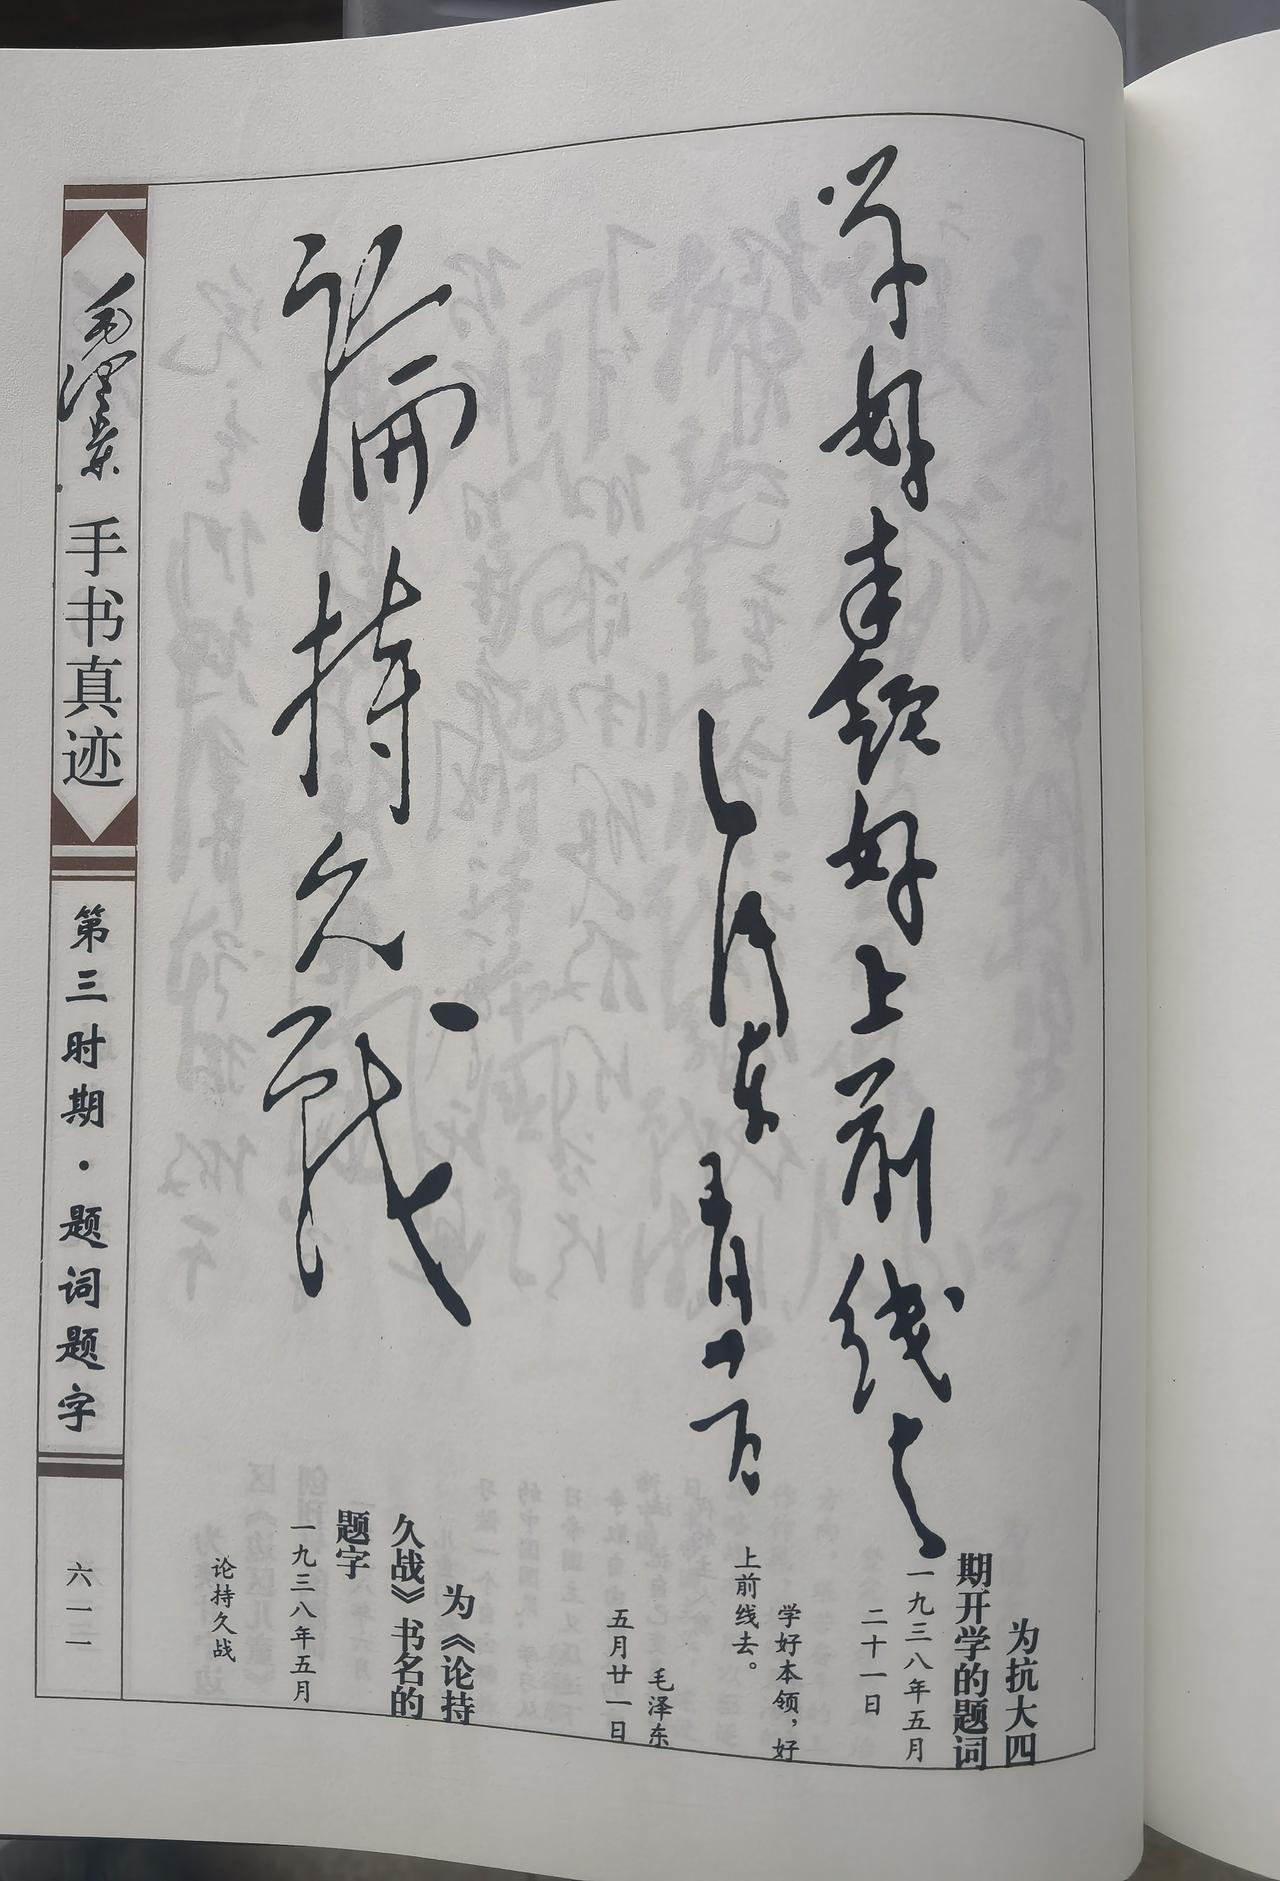 学好本领好上前线去
毛泽东
五月廿一日
为抗大四
期开学的题词
一九三八年五月
二十一日
学好本领，好
上前线去。
毛泽东
五月廿一日
論持久战
为《论持
久战》书名的
题字
一九三八年五月
论持久战
毛泽东
手书真迹
第三时期·题词题字
六一一